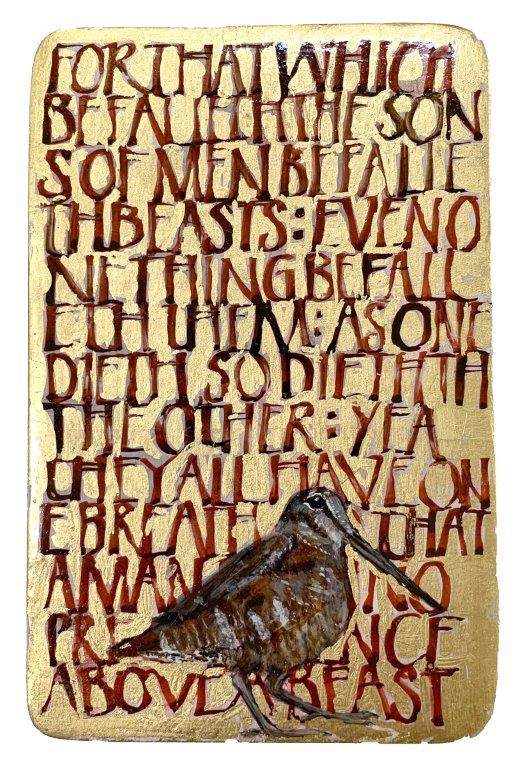 FOR THAT WHICH
BEFALLETH THE SON
S OF MEN BEFALLE
TH BEASTS: EVEN O
NE THING BEFALL
ETH THEM: AS ONE
DIETH, SO DIETH TH
THE OTHER: YEA
THEY ALL HAVE ON
E BREATH THAT
A MAN NO
PRE NCE
ABOVE A BEAST